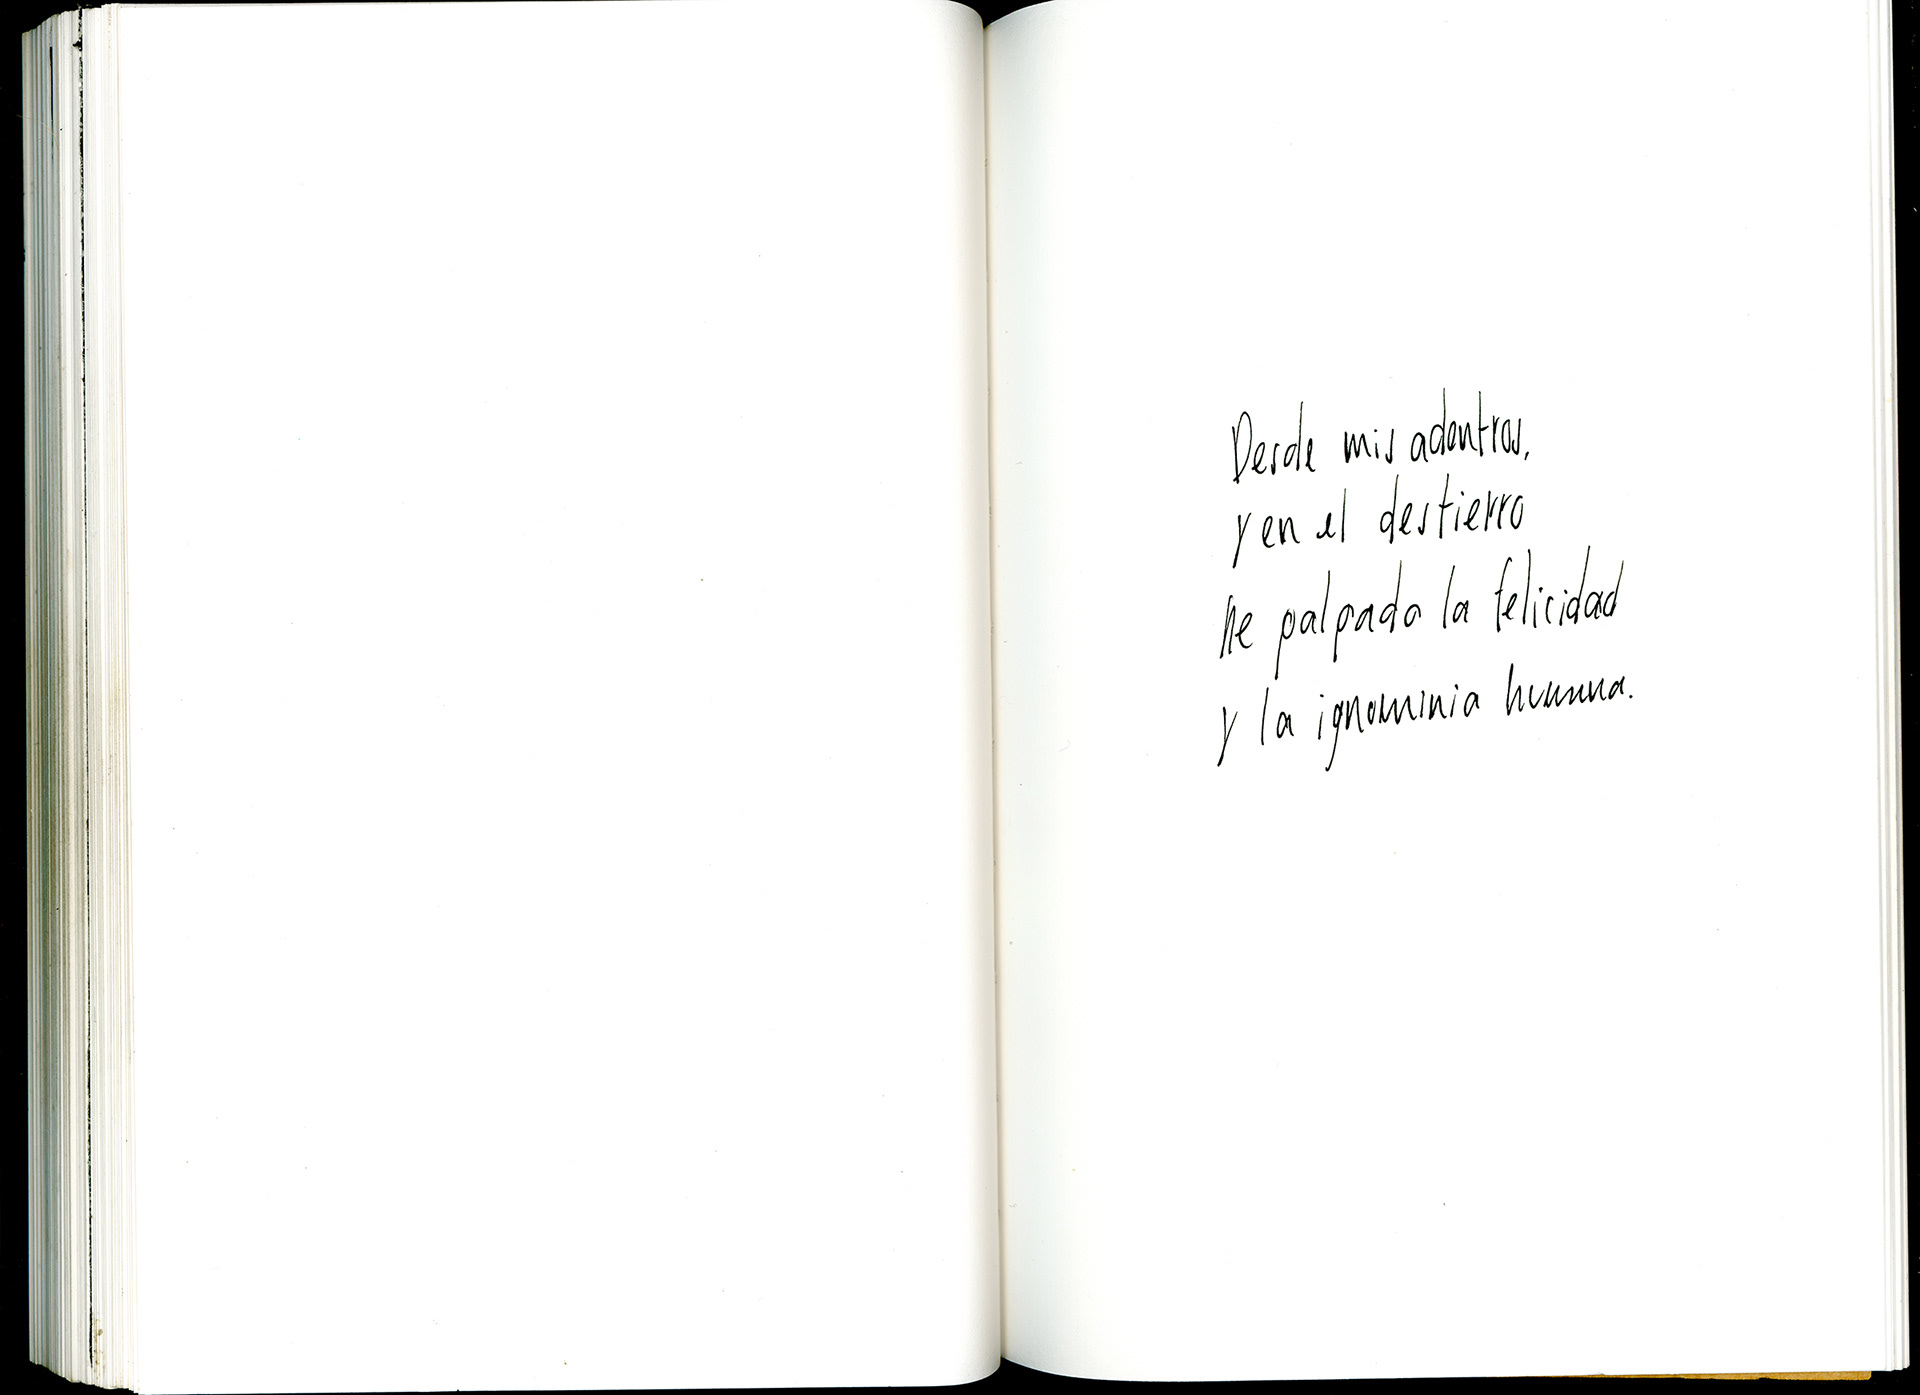 Desde mis adentros,
y en el destierro
he palpado la felicidad
y la ignominia humana.